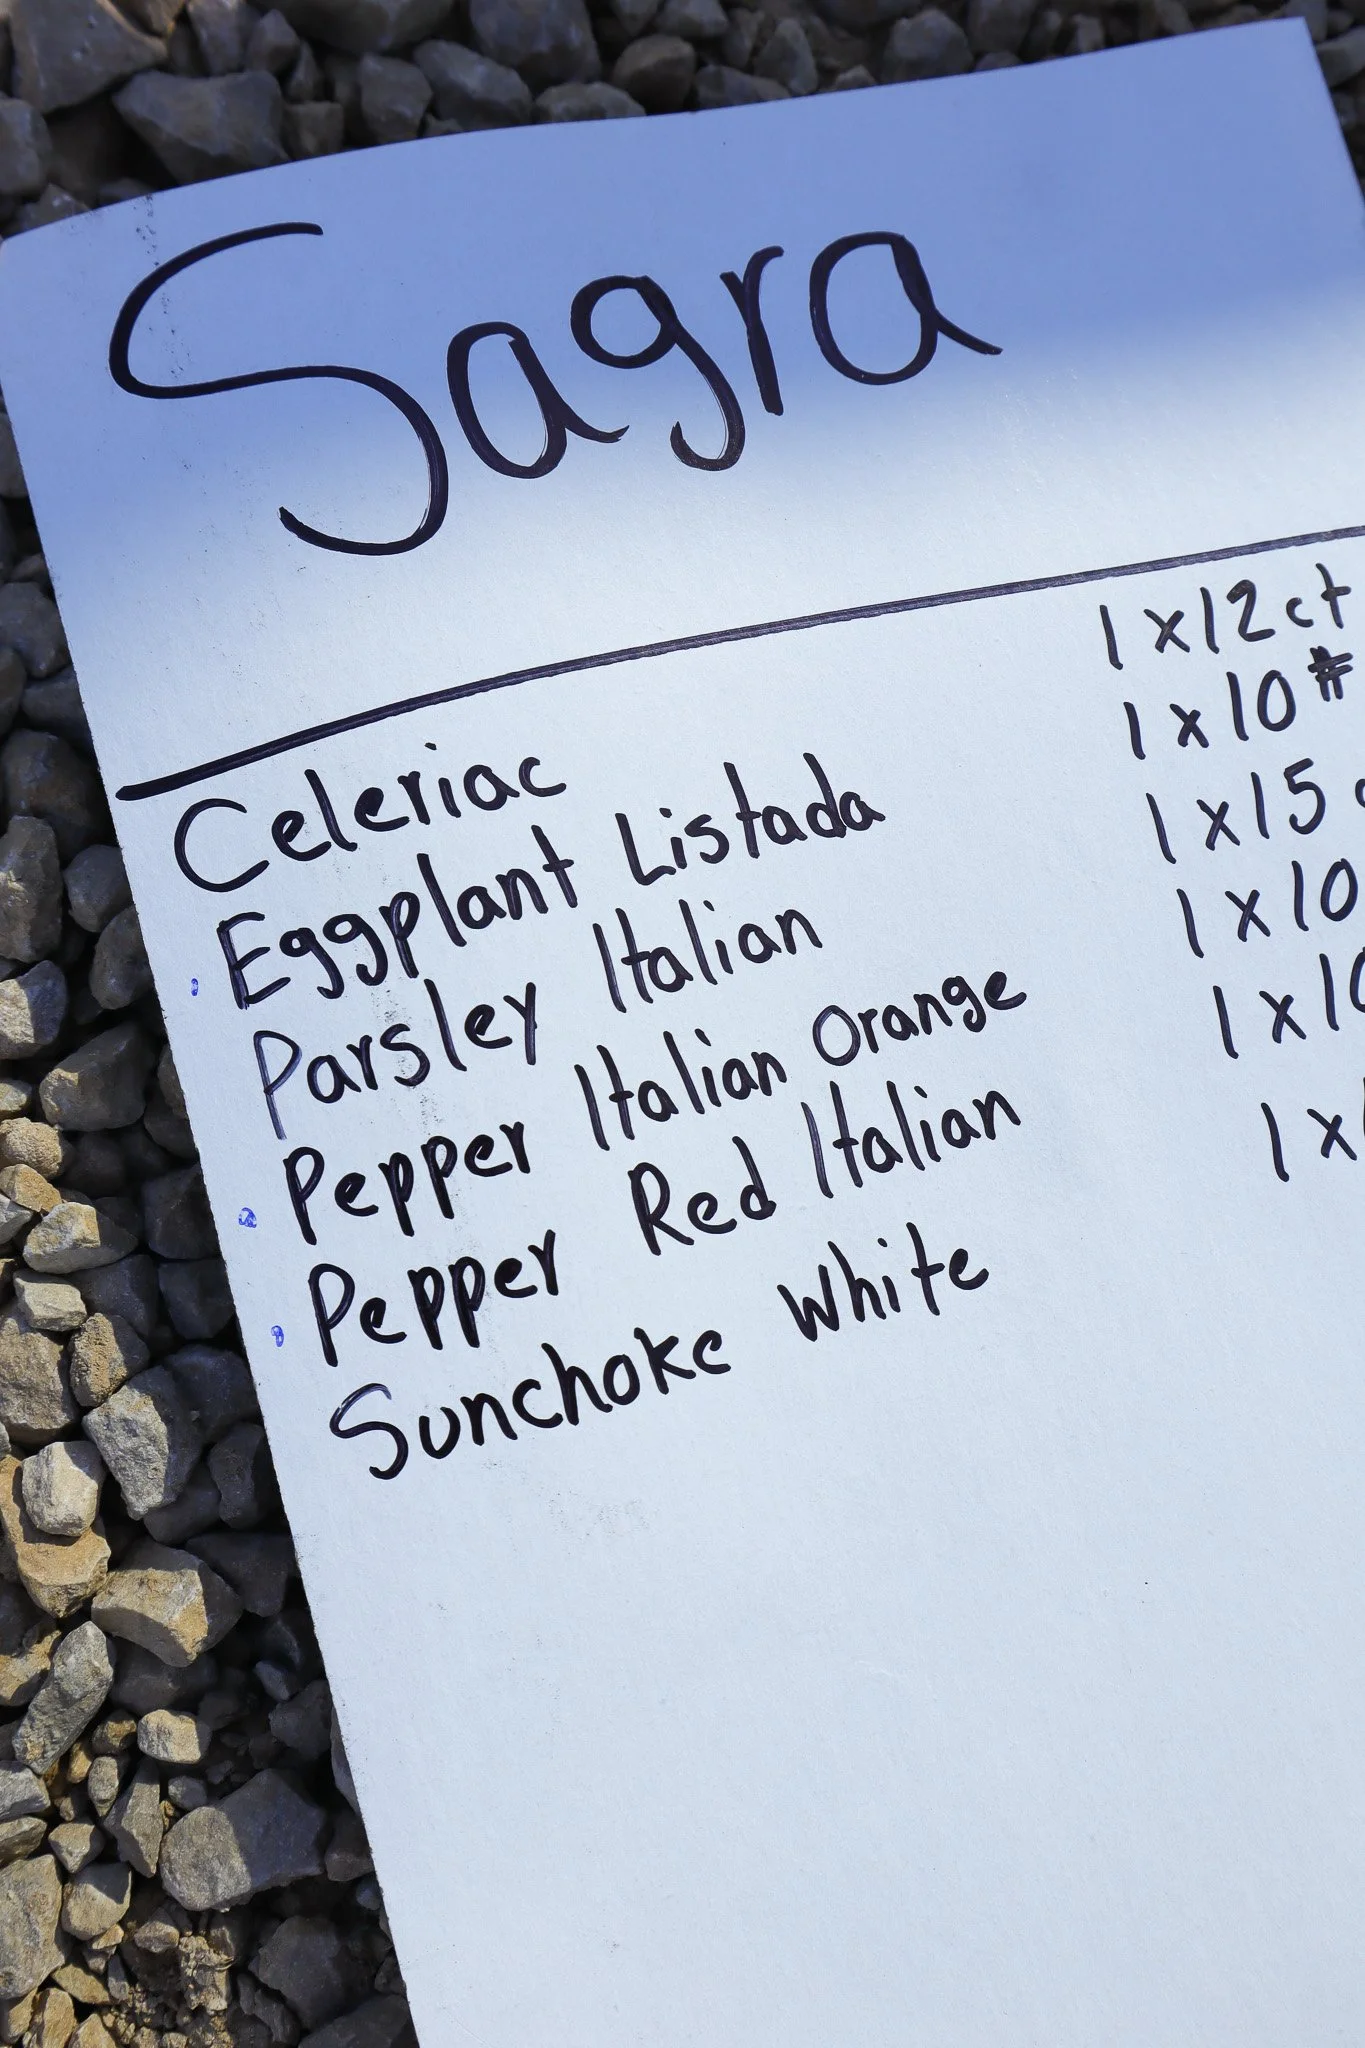 Sagra
Celeriac 1 x 12 ct
Eggplant Listada 1 x 10 #
Parsley Italian 1 x 15
Pepper Italian Orange 1 x 10
Pepper Red Italian 1 x 10
Sunchoke White 1 x